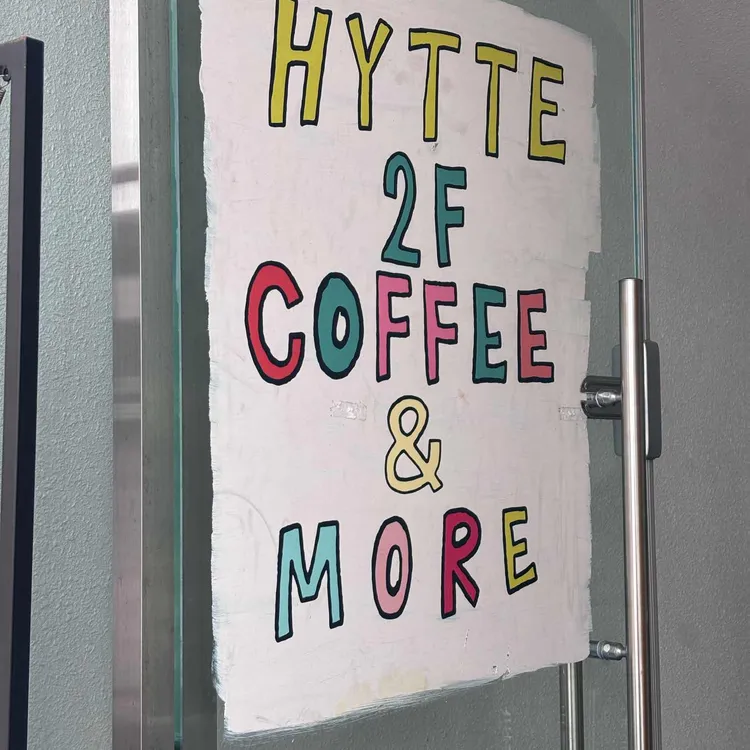 HYTTE
2F
COFFEE
&
MORE